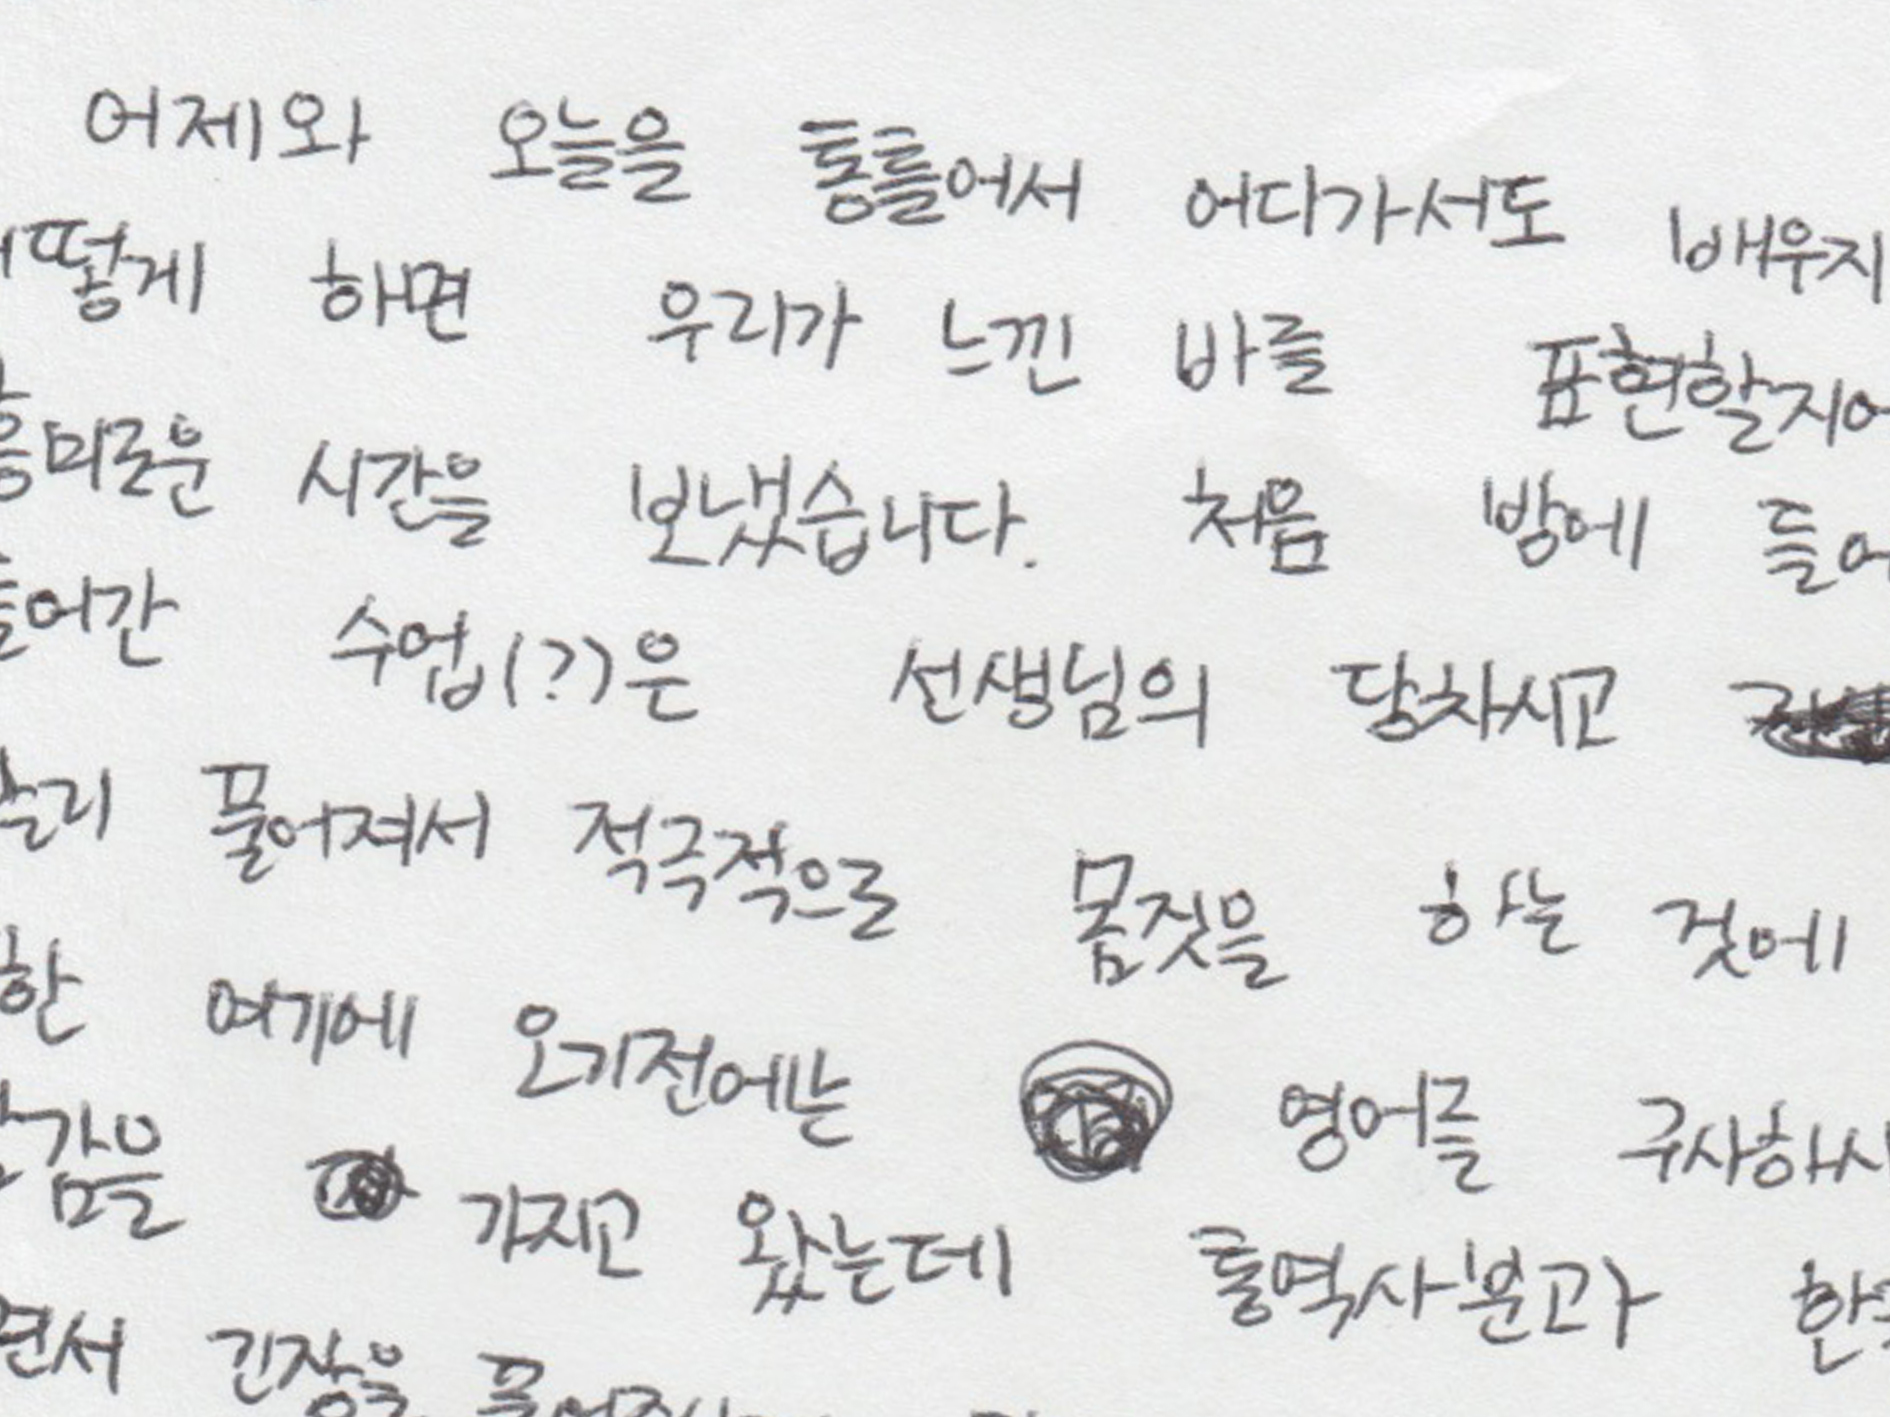 어제와 오늘을 통틀어서 어디가서도 배우지
떻게 하면 우리가 느낀 바를 표현할지에
흥미로운 시간을 보냈습니다. 처음 방에 들어
들어간 수업(?)은 선생님의 당차시고
풀어져서 적극적으로 몸짓을 하는 것에
한 여기에 오기전에는 영어를 구사하시
감을 가지고 왔는데 통역사분과 한국
면서 긴장을